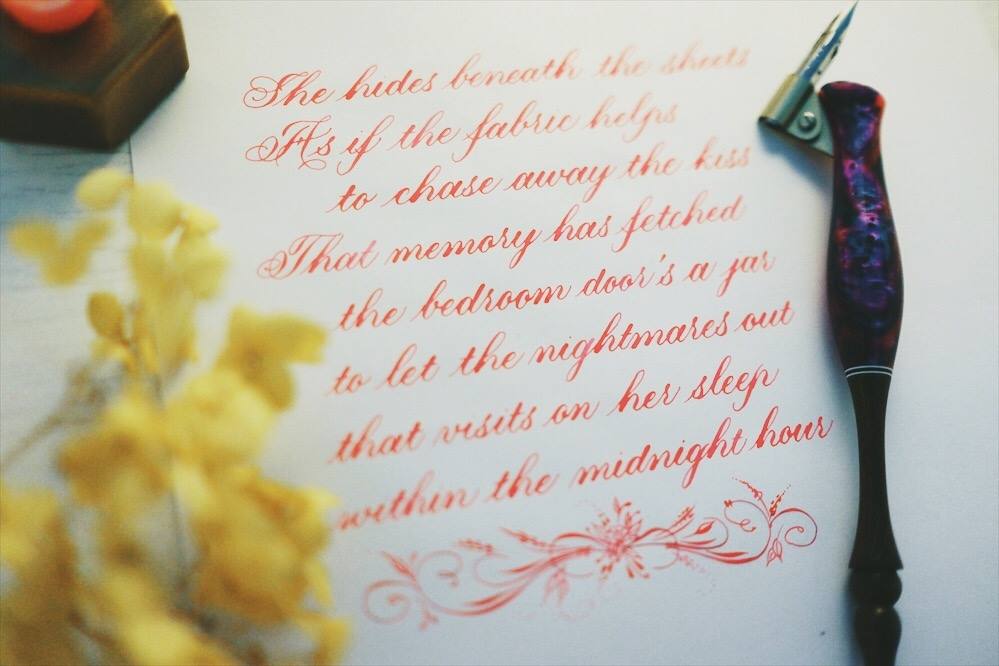 She hides beneath the sheets
As if the fabric helps
to chase away the kiss
That memory has fetched
the bedroom door's a jar
to let the nightmares out
that visits on her sleep
within the midnight hour